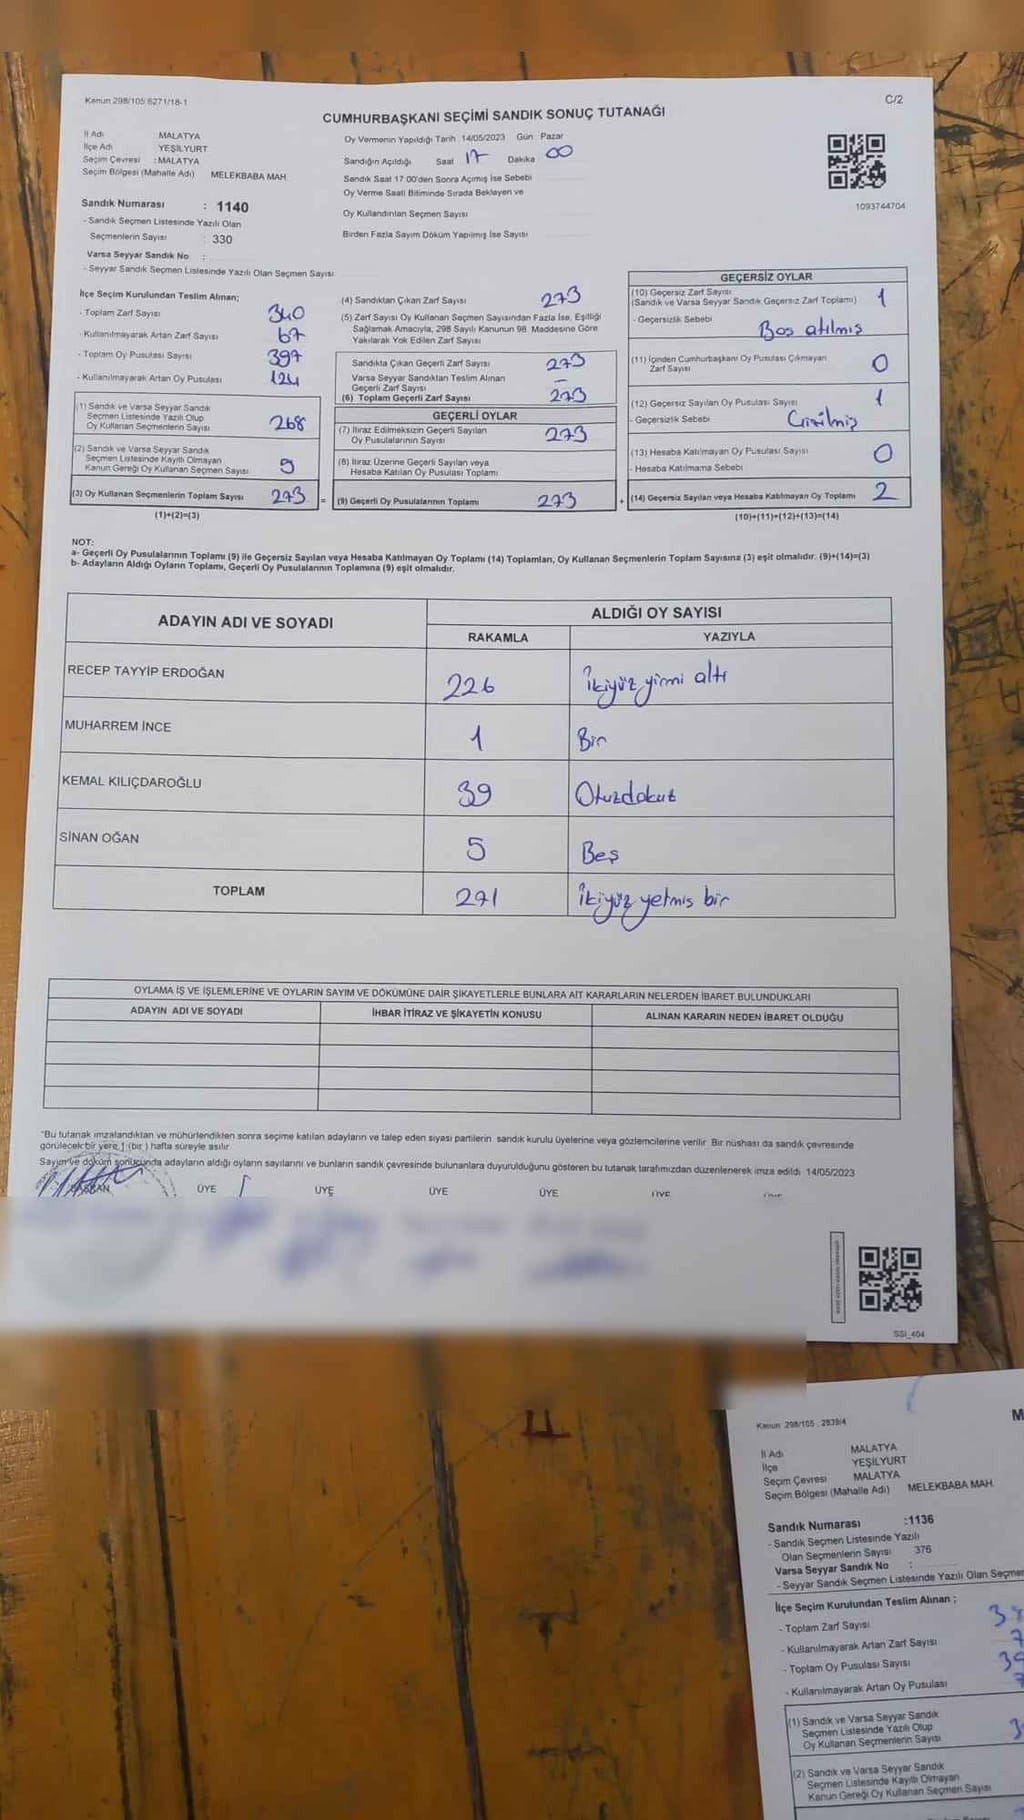 Kanun 298/105 6271/18-1
C/2
CUMHURBAŞKANI SEÇİMİ SANDIK SONUÇ TUTANAĞI
İl Adı MALATYA
İlçe Adı YEŞİLYURT
Seçim Çevresi : MALATYA
Seçim Bölgesi (Mahalle Adı) MELEKBABA MAH.
Sandık Numarası : 1140
- Sandık Seçmen Listesinde Yazılı Olan
Seçmenlerin Sayısı : 330
Varsa Seyyar Sandık No :
- Seyyar Sandık Seçmen Listesinde Yazılı Olan Seçmen Sayısı
Oy Vermenin Yapıldığı Tarih 14/05/2023 Gün Pazar
Sandığın Açıldığı Saat 17 Dakika 00
Sandık Saat 17.00'den Sonra Açımış İse Sebebi
Oy Verme Saati Bitiminde Sırada Bekleyen ve
Oy Kullandırılan Seçmen Sayısı
Birden Fazla Sayım Döküm Yapılmış İse Sayısı
1093744704
İlçe Seçim Kurulundan Teslim Alınan;
- Toplam Zarf Sayısı 340
- Kullanılmayarak Artan Zarf Sayısı 67
- Toplam Oy Pusulası Sayısı 397
- Kullanılmayarak Artan Oy Pusulası 124
(1) Sandık ve Varsa Seyyar Sandık
Seçmen Listesinde Yazılı Olup
Oy Kullanan Seçmenlerin Sayısı 268
(2) Sandık ve Varsa Seyyar Sandık
Seçmen Listesinde Kayıtlı Olmayan
Kanun Gereği Oy Kullanan Seçmen Sayısı 9
(3) Oy Kullanan Seçmenlerin Toplam Sayısı 273 =
(1)+(2)=(3)
(4) Sandıktan Çıkan Zarf Sayısı 273
(5) Zarf Sayısı Oy Kullanan Seçmen Sayısından Fazla İse, Eşitliği
Sağlamak Amacıyla, 298 Sayılı Kanunun 98. Maddesine Göre
Yakılarak Yok Edilen Zarf Sayısı
Sandıkta Çıkan Geçerli Zarf Sayısı 273
Varsa Seyyar Sandıktan Teslim Alınan
Geçerli Zarf Sayısı –
(6) Toplam Geçerli Zarf Sayısı 273
GEÇERLİ OYLAR
(7) İtiraz Edilmeksizin Geçerli Sayılan
Oy Pusulalarının Sayısı 273
(8) İtiraz Üzerine Geçerli Sayılan veya
Hesaba Katılan Oy Pusulası Toplamı
(9) Geçerli Oy Pusulalarının Toplamı 273 +
GEÇERSİZ OYLAR
(10) Geçersiz Zarf Sayısı
(Sandık ve Varsa Seyyar Sandık Geçersiz Zarf Toplamı) 1
- Geçersizlik Sebebi Boş atılmış
(11) İçinden Cumhurbaşkanı Oy Pusulası Çıkmayan
Zarf Sayısı 0
(12) Geçersiz Sayılan Oy Pusulası Sayısı 1
- Geçersizlik Sebebi Çizilmiş
(13) Hesaba Katılmayan Oy Pusulası Sayısı 0
- Hesaba Katılmama Sebebi
(14) Geçersiz Sayılan veya Hesaba Katılmayan Oy Toplamı 2
(10)+(11)+(12)+(13)=(14)
NOT:
a- Geçerli Oy Pusulalarının Toplamı (9) ile Geçersiz Sayılan veya Hesaba Katılmayan Oy Toplamı (14) Toplamları, Oy Kullanan Seçmenlerin Toplam Sayısına (3) eşit olmalıdır. (9)+(14)=(3)
b- Adayların Aldığı Oyların Toplamı, Geçerli Oy Pusulalarının Toplamına (9) eşit olmalıdır.
ADAYIN ADI VE SOYADI
ALDIĞI OY SAYISI
RAKAMLA YAZIYLA
RECEP TAYYİP ERDOĞAN 226 İkiyüz yirmi altı
MUHARREM İNCE 1 Bir
KEMAL KILIÇDAROĞLU 39 Otuzdokuz
SİNAN OĞAN 5 Beş
TOPLAM 271 İkiyüz yetmiş bir
OYLAMA İŞ VE İŞLEMLERİNE VE OYLARIN SAYIM VE DÖKÜMÜNE DAİR ŞİKAYETLERLE BUNLARA AİT KARARLARIN NELERDEN İBARET BULUNDUKLARI
ADAYIN ADI VE SOYADI İHBAR İTİRAZ VE ŞİKAYETİN KONUSU ALINAN KARARIN NEDEN İBARET OLDUĞU
"Bu tutanak imzalandıktan ve mühürlendikten sonra seçime katılan adayların ve talep eden siyasi partilerin sandık kurulu üyelerine veya gözlemcilerine verilir. Bir nüshası da sandık çevresinde
görülecek bir yere 1 (bir) hafta süreyle asılır
Sayım ve döküm sonucunda adayların aldığı oyların sayılarını ve bunların sandık çevresinde bulunanlara duyurulduğunu gösteren bu tutanak tarafımızdan düzenlenerek imza edildi. 14/05/2023
BAŞKAN ÜYE ÜYE ÜYE ÜYE ÜYE ÜYE
SSI_404
Kanun 298/105 : 2839/4
M
İl Adı MALATYA
İlçe YEŞİLYURT
Seçim Çevresi MALATYA
Seçim Bölgesi (Mahalle Adı) MELEKBABA MAH.
Sandık Numarası :1136
- Sandık Seçmen Listesinde Yazılı
Olan Seçmenlerin Sayısı 376
Varsa Seyyar Sandık No :
- Seyyar Sandık Seçmen Listesinde Yazılı Olan Seçmen
İlçe Seçim Kurulundan Teslim Alınan ;
- Toplam Zarf Sayısı
- Kullanılmayarak Artan Zarf Sayısı
- Toplam Oy Pusulası Sayısı
- Kullanılmayarak Artan Oy Pusulası
(1) Sandık ve Varsa Seyyar Sandık
Seçmen Listesinde Yazılı Olup
Oy Kullanan Seçmenlerin Sayısı
(2) Sandık ve Varsa Seyyar Sandık
Seçmen Listesinde Kayıtlı Olmayan
Kanun Gereği Oy Kullanan Seçmen Sayısı